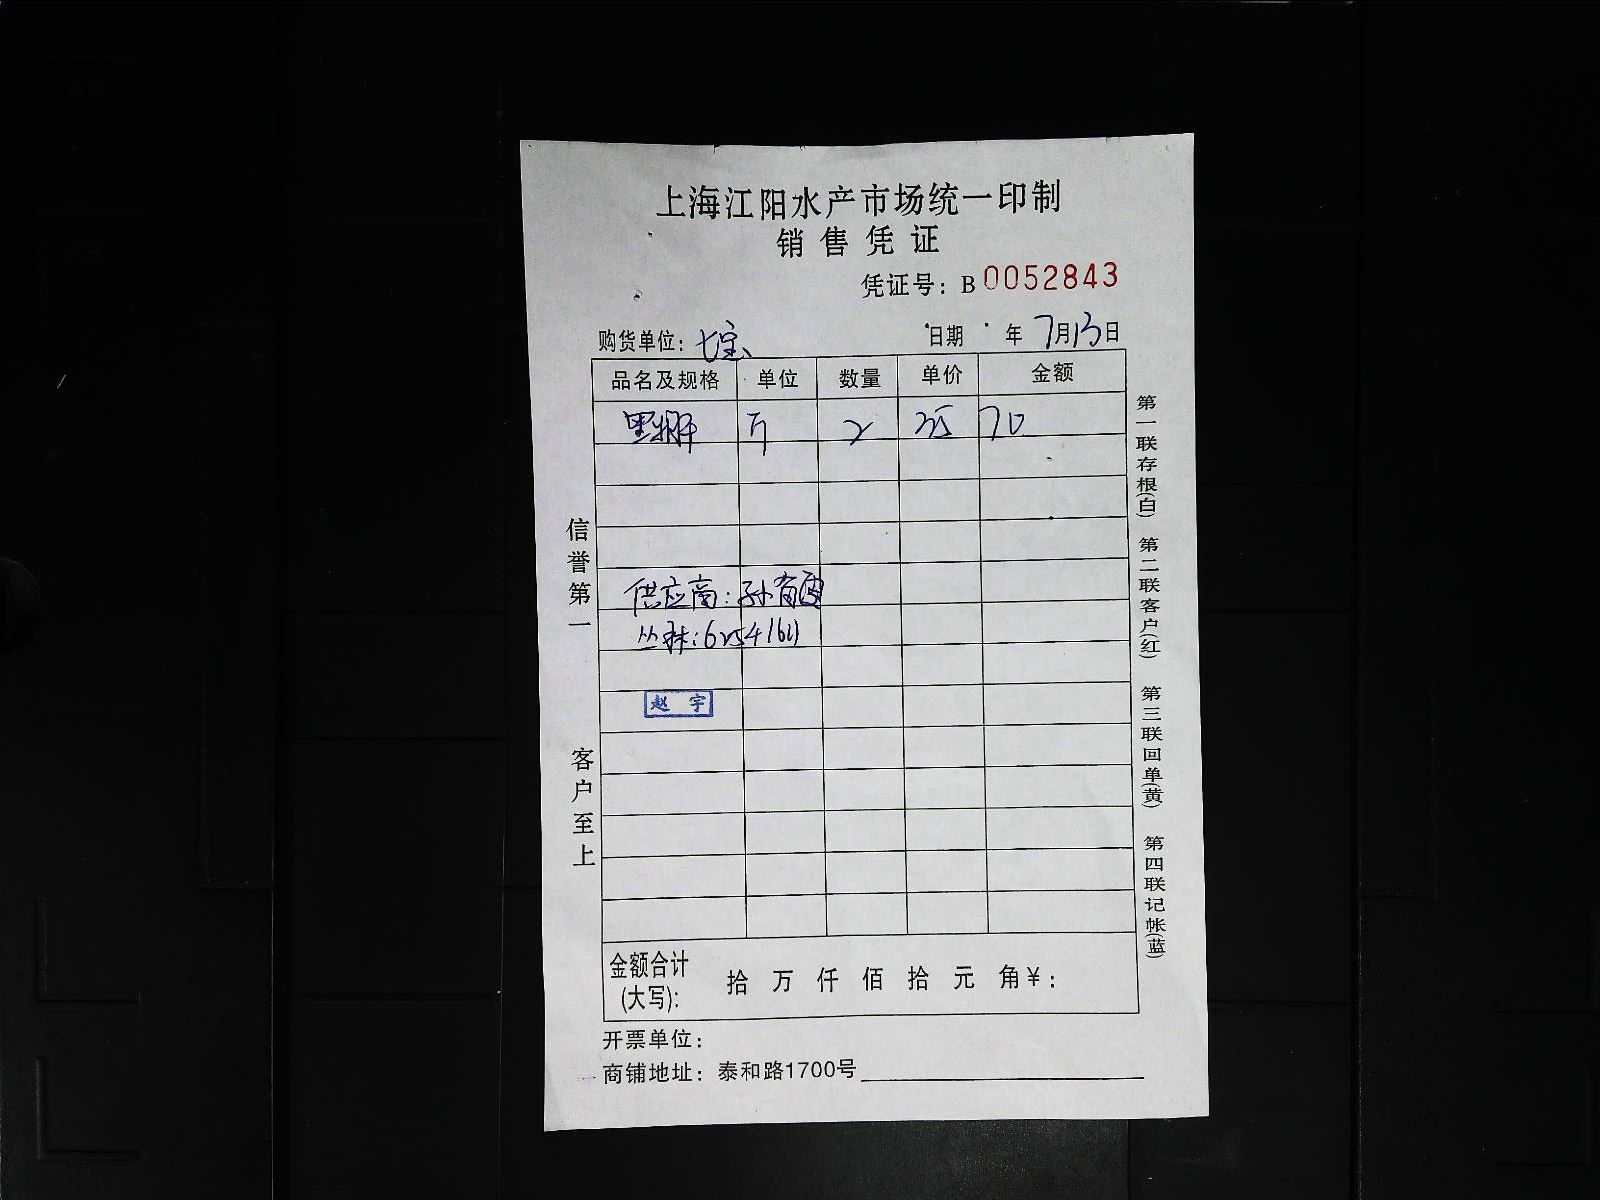 上海江阳水产市场统一印制
销售凭证
凭证号：B 0052843
购货单位：七宝 日期 年 7月13日
品名及规格 单位 数量 单价 金额
斤 2 35 70
供应商：孙
丛林：6254161
赵 宇
金额合计(大写)： 拾 万 仟 佰 拾 元 角¥：
开票单位：
商铺地址：泰和路1700号
信誉第一 客户至上
第一联存根(白) 第二联客户(红) 第三联回单(黄) 第四联记帐(蓝)